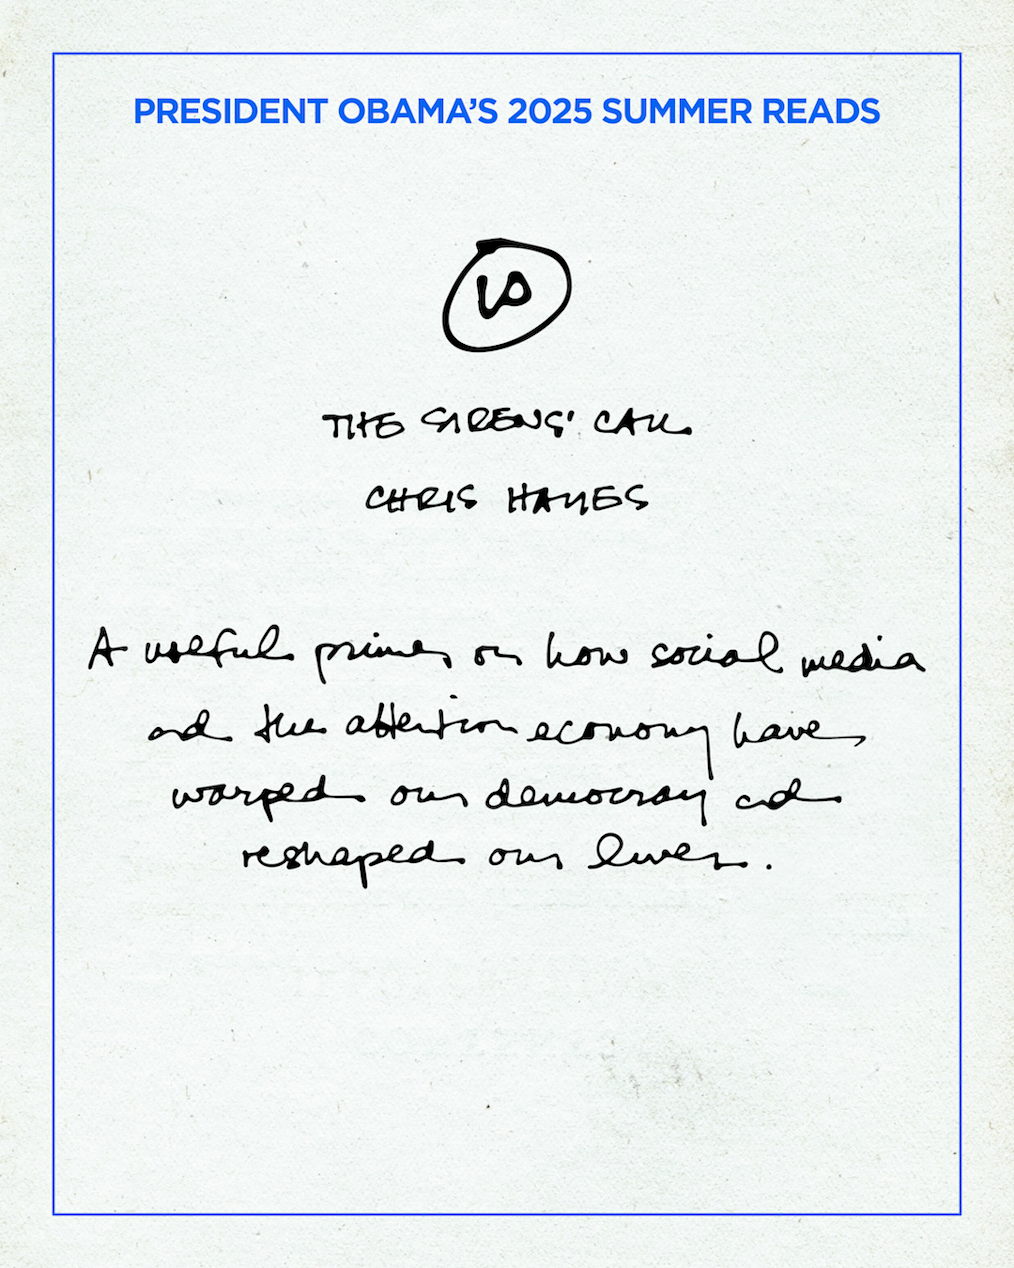 PRESIDENT OBAMA'S 2025 SUMMER READS
10
THE SIRENS' CALL
CHRIS HAYES
A useful primer on how social media
and the attention economy have
warped our democracy and
reshaped our lives.